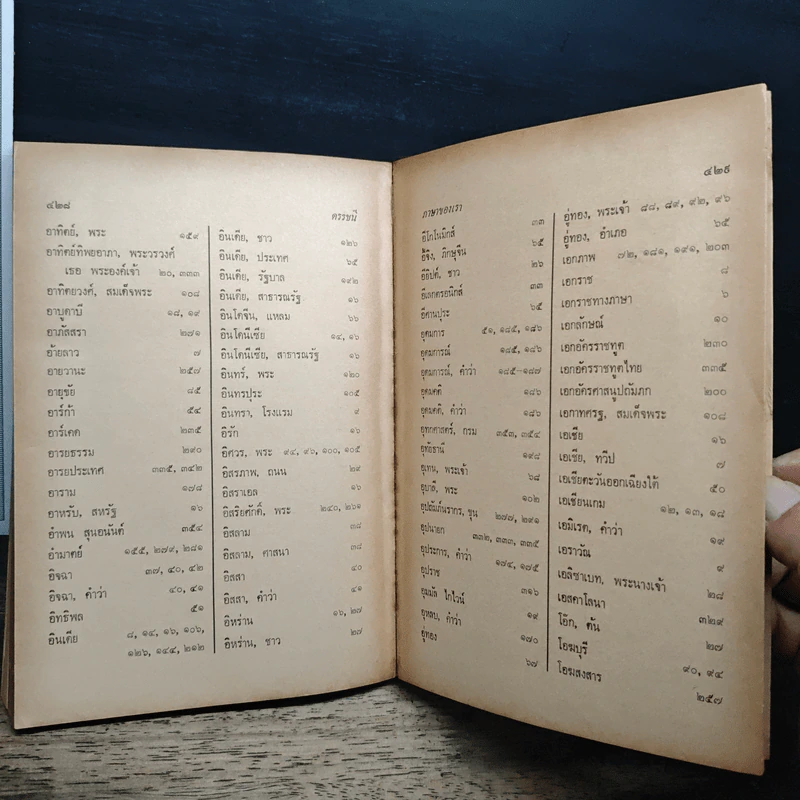 ๔๒๘
ดรรชนี
อาทิตย์, พระ ๑๕๙
อาทิตย์ทิพยอาภา, พระวรวงศ์
เธอ พระองค์เจ้า ๒๐, ๓๓๓
อาทิตยวงศ์, สมเด็จพระ ๑๐๘
อาบูดาบี ๑๘, ๑๙
อาภัสสรา ๒๗๑
อ้ายลาว ๗
อายวานะ ๒๕๗
อายุขัย ๘๕
อาร์ก้า ๕๔
อาร์เคด ๒๓๕
อารยธรรม ๒๙๐
อารยประเทศ ๓๓๕, ๓๔๒
อาราม ๑๗๘
อาหรับ, สหรัฐ ๑๖
อำพน สุนอนันต์ ๓๕๔
อำมาตย์ ๑๕๕, ๒๗๙, ๒๘๑
อิจฉา ๓๗, ๔๐, ๔๒
อิจฉา, คำว่า ๔๐, ๔๑
อิทธิพล ๕๑
อินเดีย ๘, ๑๔, ๑๖, ๑๐๖,
๑๒๖, ๑๔๔, ๒๑๒
อินเดีย, ชาว ๑๒๖
อินเดีย, ประเทศ ๖๕
อินเดีย, รัฐบาล ๑๙๒
อินเดีย, สาธารณรัฐ ๑๖
อินโดจีน, แหลม ๖๖
อินโดนีเซีย ๑๔, ๑๖
อินโดนีเซีย, สาธารณรัฐ ๑๖
อินทร์, พระ ๑๒๐
อินทรปุระ ๑๐๕
อินทรา, โรงแรม ๙
อิรัก ๑๖
อิศวร, พระ ๙๔, ๙๖, ๑๐๐, ๑๐๕
อิสรภาพ, ถนน ๒๙
อิสราเอล ๑๖
อิสริยศักดิ์, พระ ๒๔๐, ๒๖๑
อิสลาม ๓๘
อิสลาม, ศาสนา ๓๘
อิสสา ๔๐
อิสสา, คำว่า ๔๑
อิหร่าน ๑๖, ๒๗
อิหร่าน, ชาว ๒๗
๔๒๙
ภาษาของเรา
อีโกโนมิกส์ ๓๓
อี้จิง, ภิกษุจีน ๖๕
อียิปต์, ชาว ๒๖
อีเลกตรอนิกส์ ๓๓
อีศานปุระ ๖๕
อุดมการ ๕๑, ๑๘๕, ๑๘๖
อุดมการณ์ ๑๘๕, ๑๘๖
อุดมการณ์, คำว่า ๑๘๕-๑๘๗
อุดมคติ ๑๘๖
อุดมคติ, คำว่า ๑๘๖
อุทกศาสตร์, กรม ๓๕๓, ๓๕๔
อุทัยธานี ๑๙๘
อุเทน, พระเจ้า ๖๘
อุบาลี, พระ ๑๐๒
อุปถัมภ์นรากร, ขุน ๒๗๗, ๒๙๑
อุปนายก ๓๓๒, ๓๓๓, ๓๓๕
อุประการ, คำว่า ๑๗๔, ๑๗๕
อุปราช ๓๑๖
อุมมัล ไกไวน์ ๑๙
อุหลบ, คำว่า ๑๗๐
อู่ทอง ๖๗
อู่ทอง, พระเจ้า ๘๘, ๘๙, ๙๒, ๙๖
อู่ทอง, อำเภอ ๖๕
เอกภาพ ๗๒, ๑๘๑, ๑๙๑, ๒๐๓
เอกราช ๘
เอกราชทางภาษา ๖
เอกลักษณ์ ๑๐
เอกอัครราชทูต ๒๓๐
เอกอัครราชทูตไทย ๓๓๕
เอกอัครศาสนูปถัมภก ๒๐๐
เอกาทศรฐ, สมเด็จพระ ๑๐๘
เอเชีย ๑๖
เอเซีย, ทวีป ๗
เอเซียตะวันออกเฉียงใต้ ๕๐
เอเซียนเกม ๑๒, ๑๓, ๑๘
เอมิเรต, คำว่า ๑๙
เอราวัณ ๙
เอลิซาเบท, พระนางเจ้า ๒๘
เอสคาโลนา ๓๒๙
โอ๊ก, ต้น ๒๗
โอฆบุรี ๙๐, ๙๔
โอฆสงสาร ๒๕๗